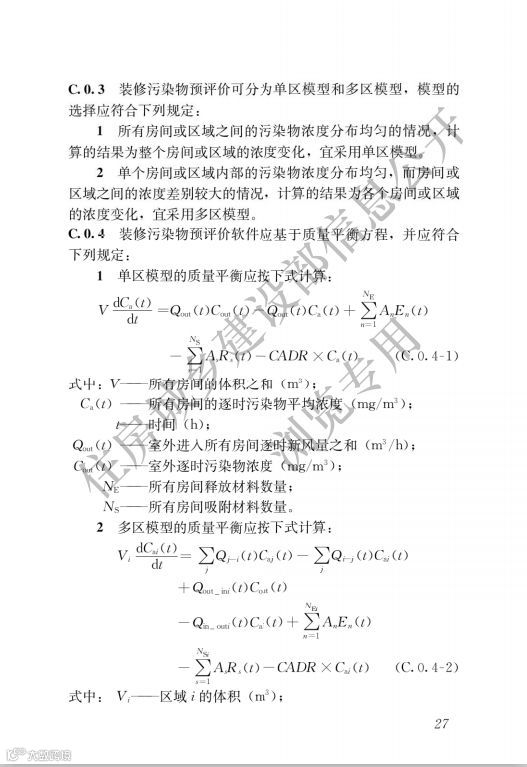 C.0.3 装修污染物预评价可分为单区模型和多区模型，模型的
选择应符合下列规定：
1 所有房间或区域之间的污染物浓度分布均匀的情况，计
算的结果为整个房间或区域的浓度变化，宜采用单区模型。
2 单个房间或区域内部的污染物浓度分布均匀，而房间或
区域之间的浓度差别较大的情况，计算的结果为各个房间或区域
的浓度变化，宜采用多区模型。
C.0.4 装修污染物预评价软件应基于质量平衡方程，并应符合
下列规定：
1 单区模型的质量平衡应按下式计算：
V dCa(t)/dt = Qout(t)Cout(t) − Qout(t)Ca(t) + ∑(n=1, NE) AnEn(t)
− ∑(s=1, NS) AsRs(t) − CADR × Ca(t) (C.0.4-1)
式中：V——所有房间的体积之和（m³）；
Ca(t)——所有房间的逐时污染物平均浓度（mg/m³）；
t——时间（h）；
Qout(t)——室外进入所有房间逐时新风量之和（m³/h）；
Cout(t)——室外逐时污染物浓度（mg/m³）；
NE——所有房间释放材料数量；
NS——所有房间吸附材料数量。
2 多区模型的质量平衡应按下式计算：
Vi dCai(t)/dt = ∑j Qj−i(t)Caj(t) − ∑j Qi−j(t)Cai(t)
+ Qout_ini(t)Cout(t)
− Qin_outi(t)Cai(t) + ∑(n=1, NEi) AnEn(t)
− ∑(s=1, NSi) AsRs(t) − CADR × Cai(t) (C.0.4-2)
式中： Vi——区域 i 的体积（m³）；
27
住房城乡建设部信息公开
浏览专用
大数跨境